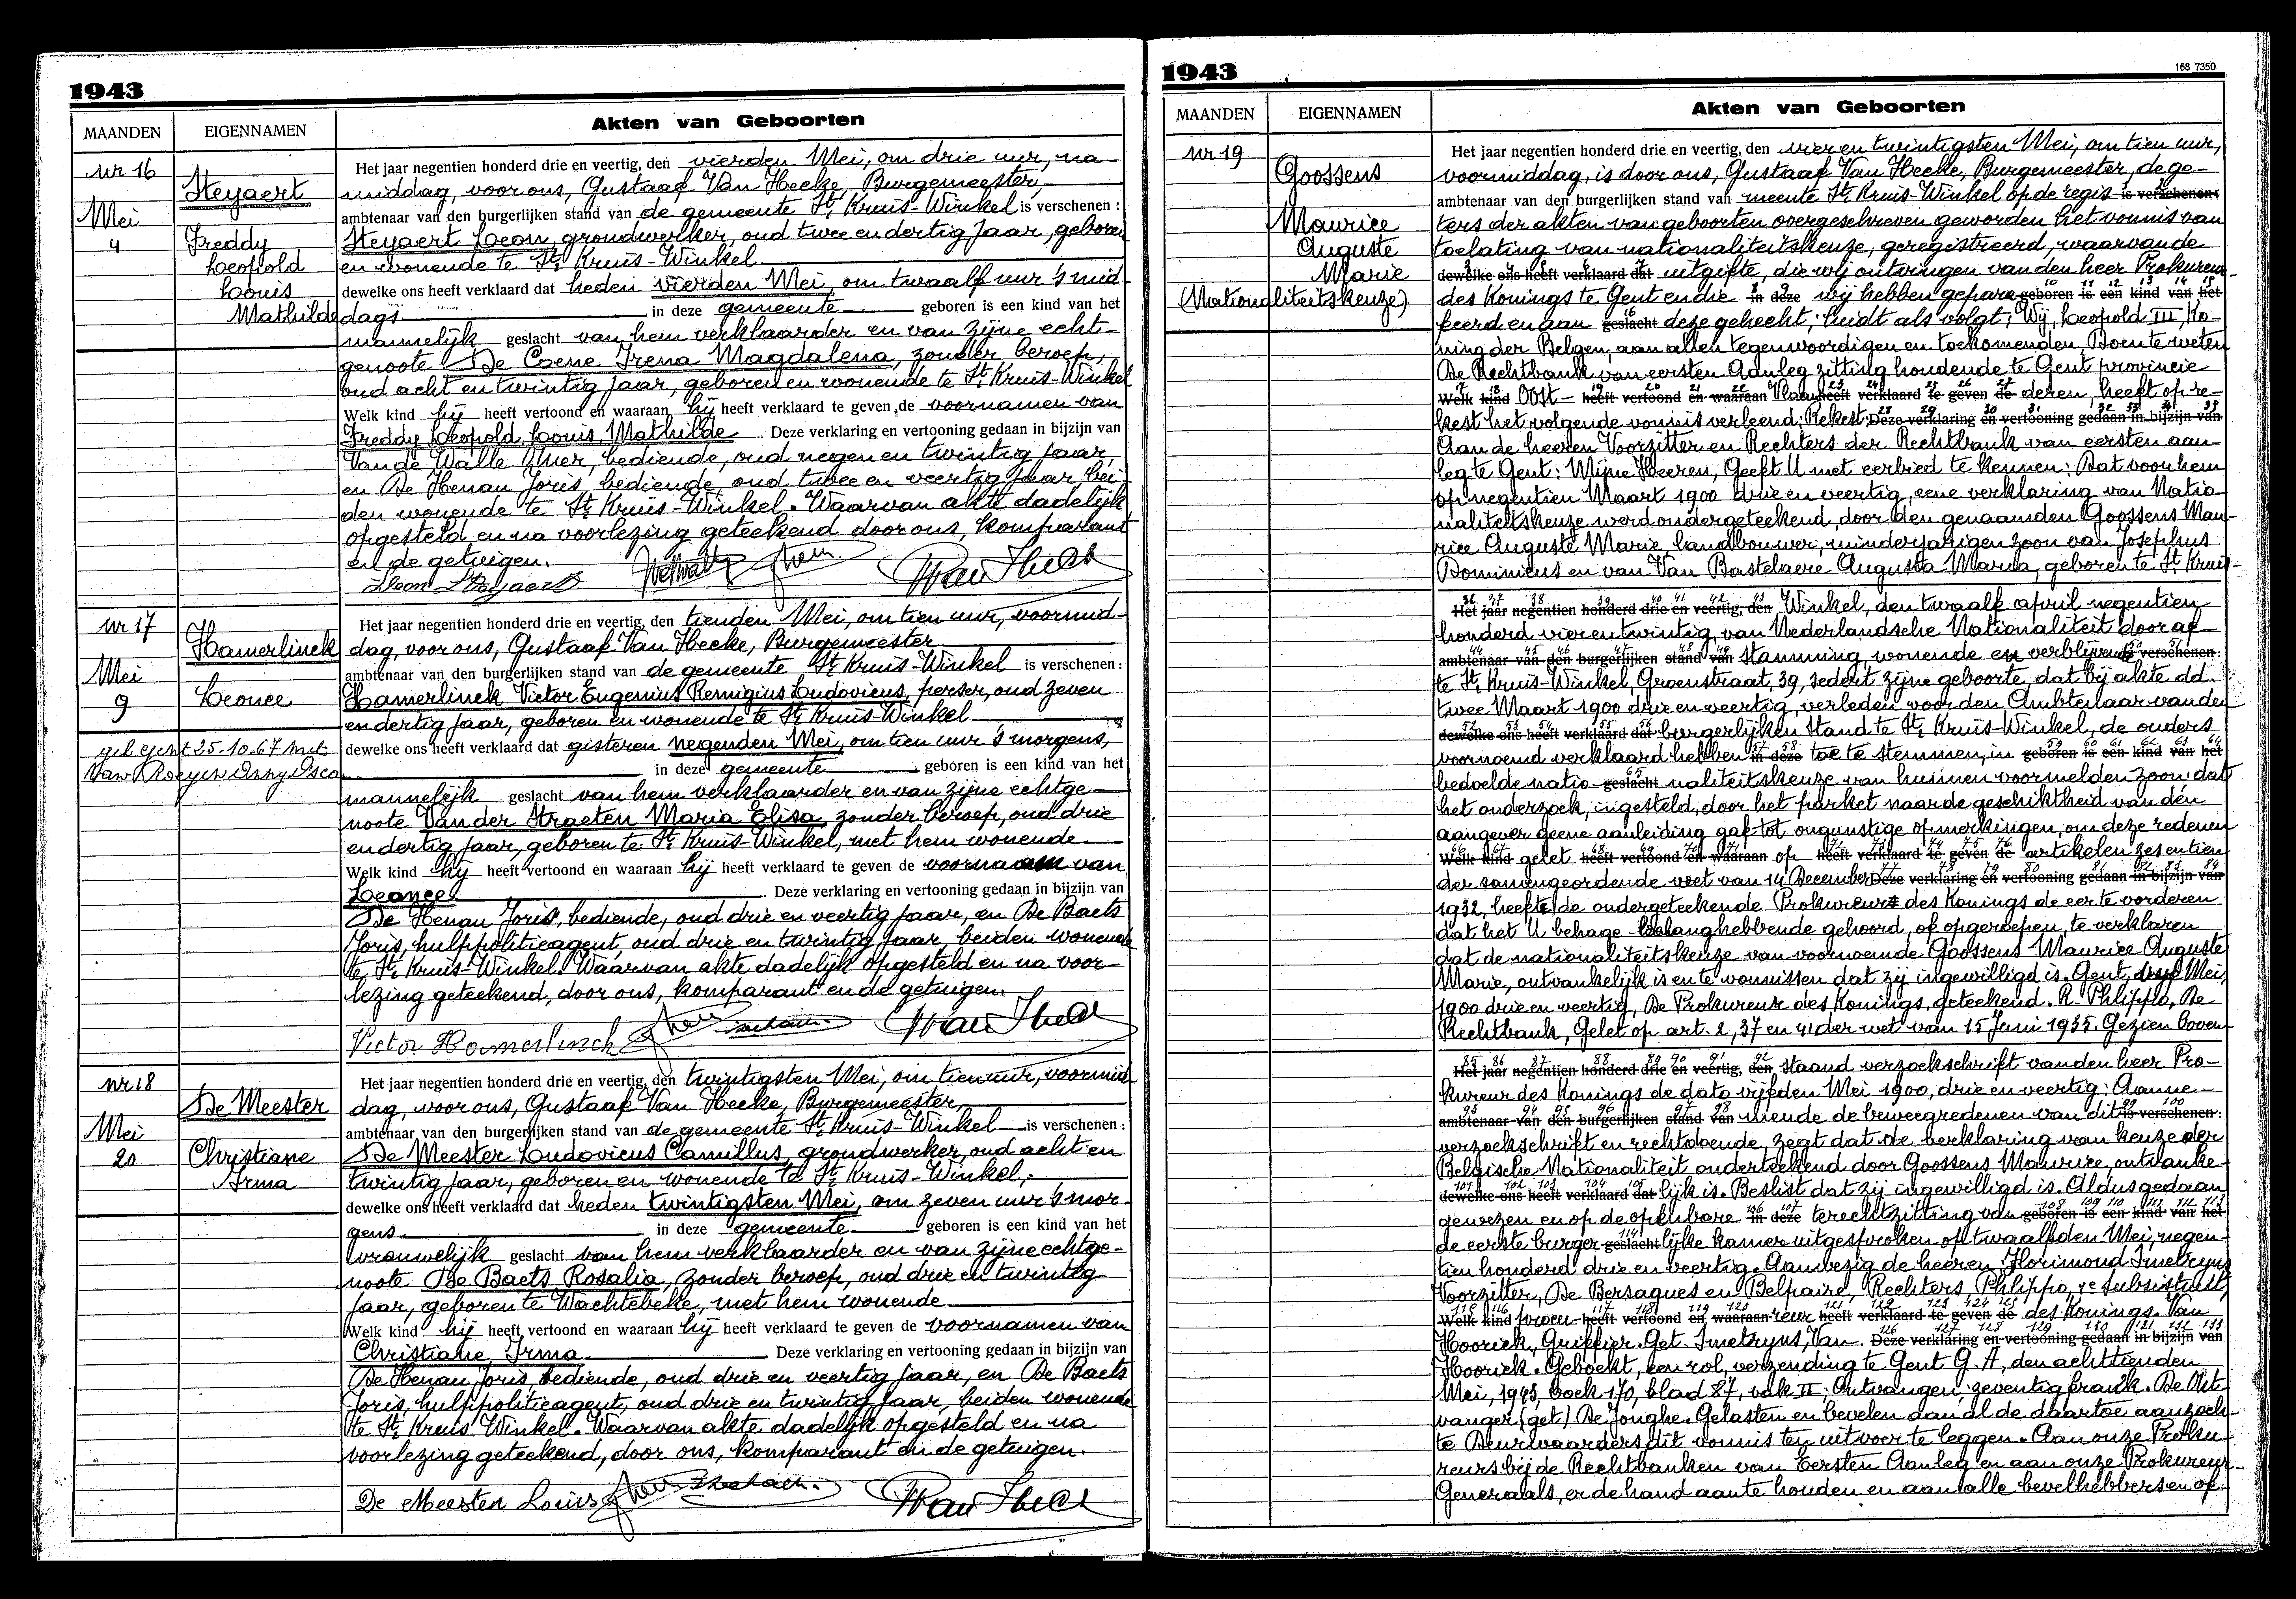 1943
MAANDEN EIGENNAMEN Akten van Geboorten
nr 16
Steyaert
Mei
4
Freddy
Leopold
Louis
Mathilde
Het jaar negentien honderd drie en veertig, den vierden Mei, om drie uur, na-
middag, voor ons, Gustaaf Van Hecke, Burgemeester,
ambtenaar van den burgerlijken stand van de gemeente St. Kruis-Winkel is verschenen:
Steyaert Leon, grondwerker, oud twee en dertig jaar, geboren
en wonende te St. Kruis-Winkel
dewelke ons heeft verklaard dat heden vierden Mei, om twaalf uur 's mid-
dags in deze gemeente geboren is een kind van het
mannelijk geslacht van hem verklaarder en van zijne echt-
genoote De Coene Irena Magdalena, zonder beroep,
oud acht en twintig jaar, geboren en wonende te St. Kruis-Winkel
Welk kind hij heeft vertoond en waaraan hij heeft verklaard te geven de voornamen van
Freddy Leopold Louis Mathilde Deze verklaring en vertooning gedaan in bijzijn van
Van de Walle Omer, bediende, oud negen en twintig jaar,
en De Henau Joris, bediende, oud twee en veertig jaar, bei-
den wonende te St. Kruis-Winkel. Waarvan akte dadelijk
opgesteld en na voorlezing geteekend door ons, komparant
en de getuigen.
Leon Steyaert
nr 17
Hamerlinck
Mei
9
Leonce
geh. Gent 25-10-67 met
Het jaar negentien honderd drie en veertig, den tienden Mei, om tien uur, voormid-
dag, voor ons, Gustaaf Van Hecke, Burgemeester
ambtenaar van den burgerlijken stand van de gemeente St. Kruis-Winkel is verschenen:
Hamerlinck Victor Eugenius Remigius Ludovicus, perser, oud zeven
en dertig jaar, geboren en wonende te St. Kruis-Winkel
dewelke ons heeft verklaard dat gisteren negenden Mei, om tien uur 's morgens,
in deze gemeente geboren is een kind van het
mannelijk geslacht van hem verklaarder en van zijne echtge-
noote Van der Straeten Maria Elisa, zonder beroep, oud drie
en dertig jaar, geboren te St. Kruis-Winkel, met hem wonende
Welk kind hij heeft vertoond en waaraan hij heeft verklaard te geven de voornaam van
Leonce Deze verklaring en vertooning gedaan in bijzijn van
De Henau Joris, bediende, oud drie en veertig jaar, en De Baets
Joris, hulppolitieagent, oud drie en twintig jaar, beiden wonende
te St. Kruis-Winkel. Waarvan akte dadelijk opgesteld en na voor-
lezing geteekend, door ons, komparant en de getuigen.
Victor Hamerlinck
nr 18
De Meester
Mei
20
Christiane
Irma
Het jaar negentien honderd drie en veertig, den twintigsten Mei, om tien uur, voormid-
dag, voor ons, Gustaaf Van Hecke, Burgemeester,
ambtenaar van den burgerlijken stand van de gemeente St. Kruis-Winkel is verschenen:
De Meester Ludovicus Camillus, grondwerker, oud acht en
twintig jaar, geboren en wonende te St. Kruis-Winkel,
dewelke ons heeft verklaard dat heden twintigsten Mei, om zeven uur 's mor-
gens in deze gemeente geboren is een kind van het
vrouwelijk geslacht van hem verklaarder en van zijne echtge-
noote De Baets Rosalia, zonder beroep, oud drie en twintig
jaar, geboren te Wachtebeke, met hem wonende
Welk kind hij heeft vertoond en waaraan hij heeft verklaard te geven de voornamen van
Christiane Irma Deze verklaring en vertooning gedaan in bijzijn van
De Henau Joris, bediende, oud drie en veertig jaar, en De Baets
Joris, hulppolitieagent, oud drie en twintig jaar, beiden wonende
te St. Kruis Winkel. Waarvan akte dadelijk opgesteld en na
voorlezing geteekend, door ons, komparant en de getuigen.
De Meester Louis
1943
168 7350
MAANDEN EIGENNAMEN Akten van Geboorten
nr 19
Goossens
Maurice
Auguste
Marie
(Nationaliteitskeuze)
Het jaar negentien honderd drie en veertig, den vier en twintigsten Mei, om tien uur,
voormiddag, is door ons, Gustaaf Van Hecke, Burgemeester, de ge-
ambtenaar van den burgerlijken stand van meente St. Kruis-Winkel op de regis- is verschenen
ters der akten van geboorten overgeschreven geworden het vonnis van
toelating van nationaliteitskeuze, geregistreerd, waarvan de
dewelke ons heeft verklaard dat uitgifte, die wij ontvingen van den heer Prokureur
des Konings te Gent en die in deze wij hebben gepara- geboren is een kind van het
feerd en aan geslacht deze gehecht, luidt als volgt: Wij, Leopold III, Ko-
ning der Belgen, aan allen tegenwoordigen en toekomenden, Doen te weten
De Rechtbank van eersten Aanleg zitting houdende te Gent provincie
Welk kind Oost- heeft vertoond en waaraan Vlaan- heeft verklaard te geven de deren, heeft op re-
kest het volgende vonnis verleend: Rekest: Deze verklaring en vertooning gedaan in bijzijn van
Aan de heeren Voorzitter en Rechters der Rechtbank van eersten aan-
leg te Gent: Mijne Heeren, Geeft U met eerbied te kennen: Dat voor hem
op negentien Maart 1900 drie en veertig, eene verklaring van Natio-
naliteitskeuze werd ondergeteekend, door den genaamden Goossens Mau-
rice Auguste Marie landbouwer, minderjarigen zoon van Josephus
Dominicus en van Van Bastelaere Augusta Maria, geboren te St. Kruis-
Het jaar negentien honderd drie en veertig, den Winkel, den twaalf april negentien
honderd vier en twintig, van Nederlandsche Nationaliteit door af-
ambtenaar van den burgerlijken stand van stamming, wonende en verblijvende is verschenen:
te St. Kruis-Winkel, Groenstraat, 39, sedert zijne geboorte, dat bij akte dd.
twee Maart 1900 drie en veertig, verleden voor den Ambtenaar van den
dewelke ons heeft verklaard dat burgerlijken Stand te St. Kruis-Winkel, de ouders
voornoemd verklaard hebben in deze toe te stemmen, in geboren is een kind van het
bedoelde natio- geslacht naliteitskeuze van hunnen voormelden zoon: dat
het onderzoek, ingesteld, door het parket naar de geschiktheid van den
aangever geene aanleiding gaf tot ongunstige opmerkingen; om deze redenen
Welk kind gelet heeft vertoond en waaraan op heeft verklaard te geven de artikelen zes en tien
der samengeordende wet van 14 December Deze verklaring en vertooning gedaan in bijzijn van
1932, heeft de ondergeteekende Prokureur des Konings de eer te vorderen
dat het U behage belanghebbende gehoord, of opgeroepen, te verklaren
dat de nationaliteitskeuze van voornoemde Goossens Maurice Auguste
Marie, ontvankelijk is en te vonnissen dat zij ingewilligd is. Gent, Mei,
1900 drie en veertig, De Prokureur des Konings, geteekend. R. Philippo, De
Rechtbank, Gelet op art. 2, 37 en 41 der wet van 15 Juni 1935. Gezien boven-
Het jaar negentien honderd drie en veertig, den staand verzoekschrift van den heer Pro-
kureur des Konings de dato vijfden Mei 1900, drie en veertig: Aanne-
ambtenaar van den burgerlijken stand van mende de beweegredenen van dit is verschenen:
verzoekschrift en rechtdoende, zegt dat de verklaring van keuze der
Belgische Nationaliteit onderteekend door Goossens Maurice, ontvanke-
dewelke ons heeft verklaard dat lijk is. Beslist dat zij ingewilligd is. Aldus gedaan
gewezen en op de openbare in deze terechtzitting van geboren is een kind van het
de eerste burger- geslacht lijke kamer uitgesproken op twaalfden Mei, negen-
tien honderd drie en veertig. Aanwezig de heeren: Florimond Imetryns
Voorzitter, De Bersaques en Belpaire, Rechters, Philippo, 1e Subsistituut,
Welk kind procu- heeft vertoond en waaraan reur heeft verklaard te geven de des Konings. Van
Hoorick, Griffier. Get. Imetryns, Van. Deze verklaring en vertooning gedaan in bijzijn van
Hoorick. Geboekt, een rol, verzending te Gent G. A, den achttienden
Mei, 1943, boek 170, blad 87, vak II: Ontvangen: zeventig frank. De Ont-
vanger (get) De Jonghe. Gelasten en bevelen aan al de daartoe aanzoch-
te Deurwaarders dit vonnis ten uitvoer te leggen. Aan onze Proku-
reurs bij de Rechtbanken van Eersten Aanleg en aan onze Prokureur-
Generaals, er de hand aan te houden en aan alle bevelhebbers en of-